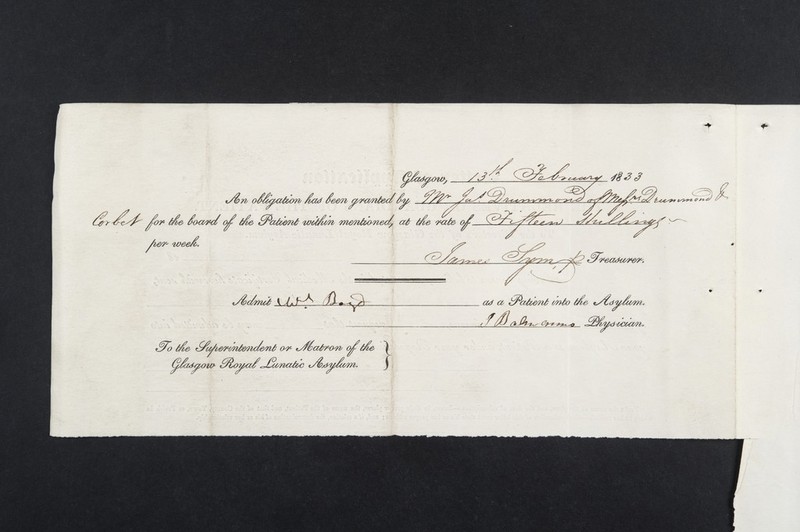 Glasgow, 13th February 1833
An obligation has been granted by Mr Jas. Drummond of Messrs Drummond &
Corbet for the board of the Patient within mentioned, at the rate of Fifteen Shillings
per week.
James Sym, p Treasurer.
Admit Wm Boyd as a Patient into the Asylum.
J Balmanno Physician.
To the Superintendent or Matron of the
Glasgow Royal Lunatic Asylum. }